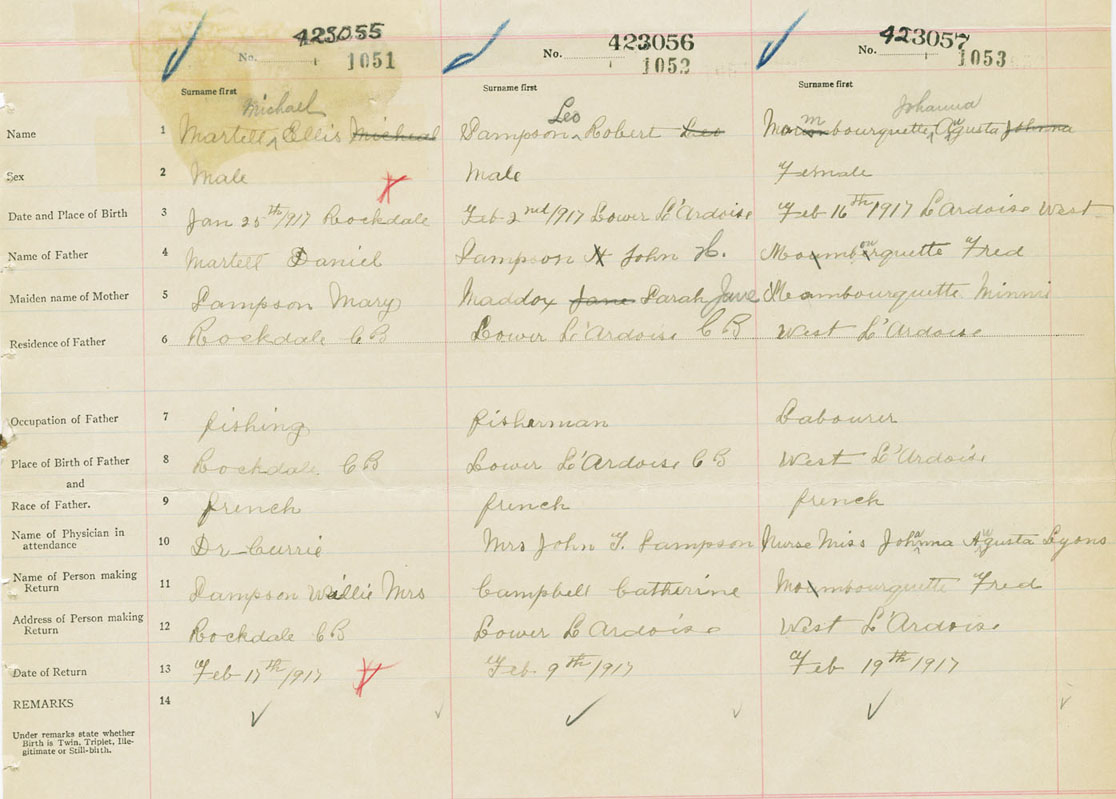 423055 423056 423057
No. 1051 No. 1052 No. 1053
Surname first Surname first Surname first
Michael Leo Johanna
Name 1 Martell Ellis Micheal Sampson Robert Leo Mombourquette Agusta Johnna
Sex 2 Male Male Female
Date and Place of Birth 3 Jan 25th/917 Rockdale Feb 2nd/917 Lower L'Ardoise Feb 16th 1917 L'Ardoise West
Name of Father 4 Martell Daniel Sampson John H. Mombourquette Fred
Maiden name of Mother 5 Sampson Mary Maddox Jane Sarah Jane Mombourquette Minnie
Residence of Father 6 Rockdale CB Lower L'Ardoise CB West L'Ardoise
Occupation of Father 7 fishing fisherman Labourer
Place of Birth of Father 8 Rockdale CB Lower L'Ardoise CB West L'Ardoise
and
Race of Father. 9 french french french
Name of Physician in attendance 10 Dr Currie Mrs John T. Sampson Nurse Miss Johanna Augusta Lyons
Name of Person making Return 11 Sampson Willie Mrs Campbell Catherine Mombourquette Fred
Address of Person making Return 12 Rockdale CB Lower L'Ardoise West L'Ardoise
Date of Return 13 Feb 17th/917 Feb 9th/1917 Feb 19th/1917
REMARKS 14
Under remarks state whether
Birth is Twin, Triplet, Ille-
gitimate or Still-birth.